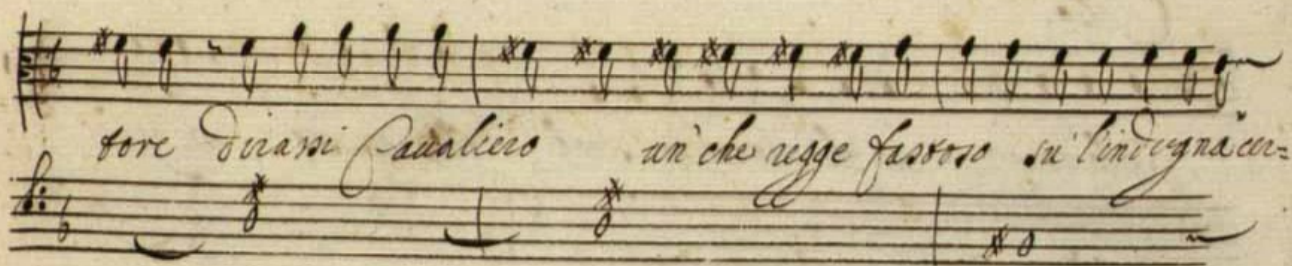 tore dirassi Cavaliero un' che regge fastoso su l'indegna cer=